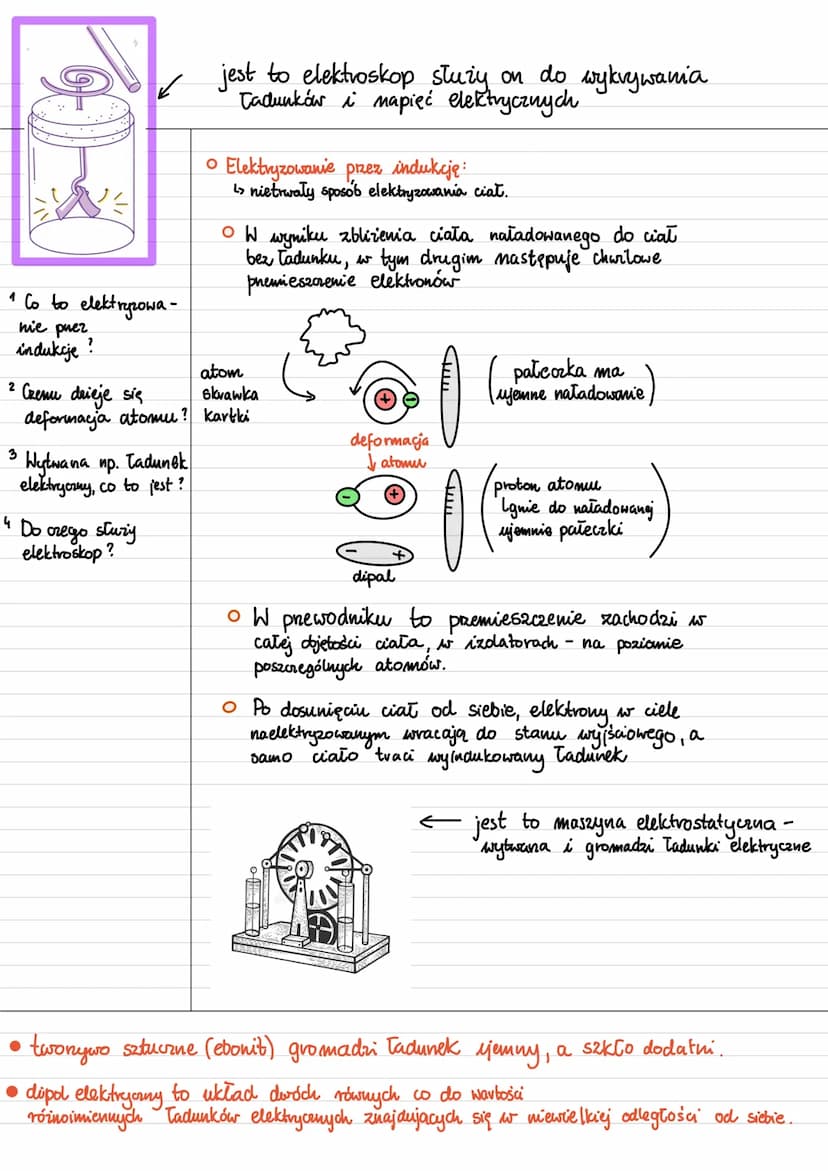 jest to elektroskop służy on do wykrywania
ładunków i napięć elektrycznych
Elektryzowanie przez indukcję:
↳ nietrwały sposób elektryzowania ciał.
W wyniku zbliżenia ciała naładowanego do ciał
bez ładunku, w tym drugim następuje chwilowe
przemieszczenie elektronów
1 Co to elektryzowa-
nie przez
indukcję?
2 Czemu dzieje się
deformacja atomu?
3 Wytwarza np. ładunek
elektryczny, co to jest?
4 Do czego służy
elektroskop?
atom
skrawka
kartki
+ -
(pałeczka ma
ujemne naładowanie)
deformacja
↓ atomu
- +
(proton atomu
lgnie do naładowanej
ujemnie pałeczki)
- +
dipol
W przewodniku to przemieszczenie zachodzi w
całej objętości ciała, w izolatorach - na poziomie
poszczególnych atomów.
Po dosunięciu ciał od siebie, elektrony w ciele
naelektryzowanym wracają do stanu wyjściowego, a
samo ciało traci wyindukowany ładunek
← jest to maszyna elektrostatyczna -
wytwarza i gromadzi ładunki elektryczne
• tworzywo sztuczne (ebonit) gromadzi ładunek ujemny, a szkło dodatni.
• dipol elektryczny to układ dwóch równych co do wartości
różnoimiennych ładunków elektrycznych znajdujących się w niewielkiej odległości od siebie.